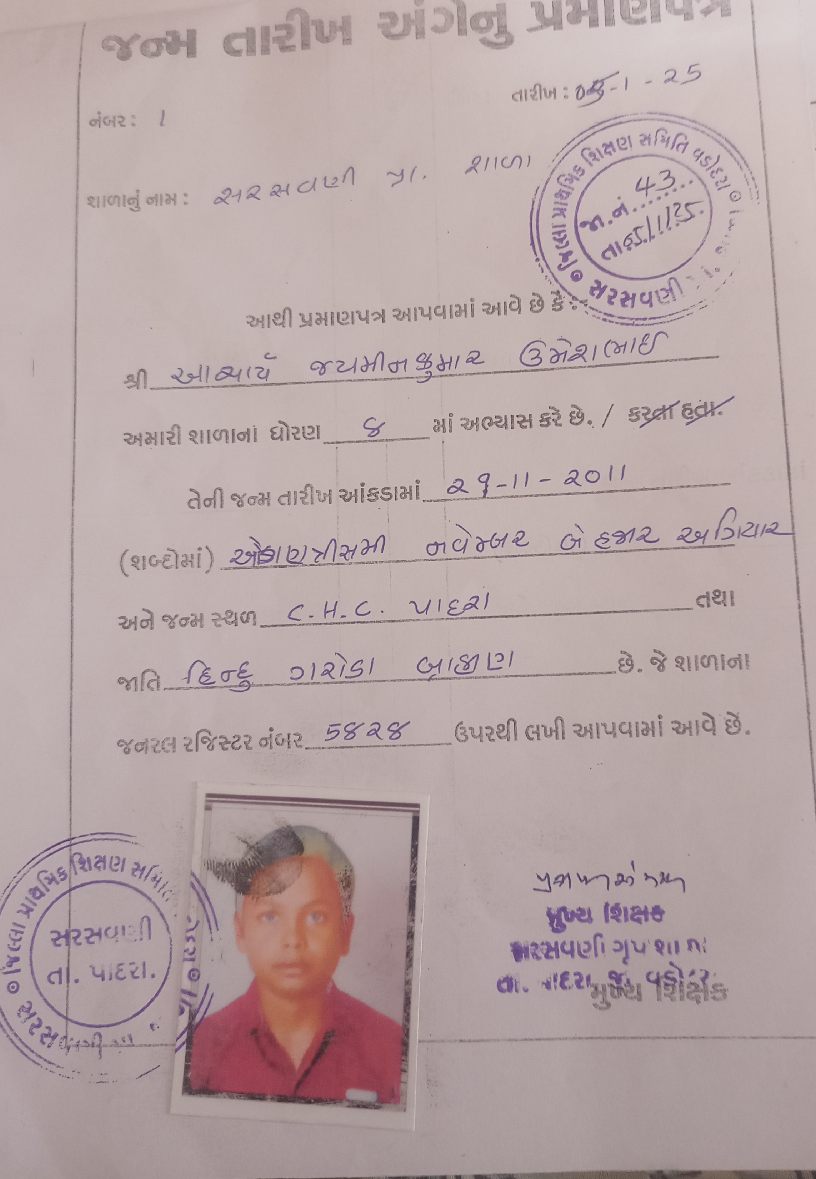 જન્મ તારીખ અંગેનુ પ્રમાણપત્ર
તારીખ : 05-1-25
નંબર : 1
શાળાનું નામ : સરસવણી પ્રા. શાળા
જિલ્લા પ્રાથમિક શિક્ષણ સમિતિ વડોદરા
જા.નં. 43
તા.05/1/25
સરસવણી
આથી પ્રમાણપત્ર આપવામાં આવે છે કે :-
શ્રી આચાર્ય જયમીનકુમાર ઉમેશભાઈ
અમારી શાળાનાં ધોરણ 8 માં અભ્યાસ કરે છે. / કરતા હતા.
તેની જન્મ તારીખ આંકડામાં 29-11-2011
(શબ્દોમાં) ઓગણત્રીસમી નવેમ્બર બે હજાર અગિયાર
અને જન્મ સ્થળ C.H.C. પાદરા તથા
જાતિ હિન્દુ ગરોડા બ્રાહ્મણ છે. જે શાળાના
જનરલ રજિસ્ટર નંબર 5828 ઉપરથી લખી આપવામાં આવે છે.
જિલ્લા પ્રાથમિક શિક્ષણ સમિતિ
સરસવાણી
તા. પાદરા.
મુખ્ય શિક્ષક
સરસવણી ગૃપ શાળા
તા. પાદરા જી. વડોદરા
મુખ્ય શિક્ષક